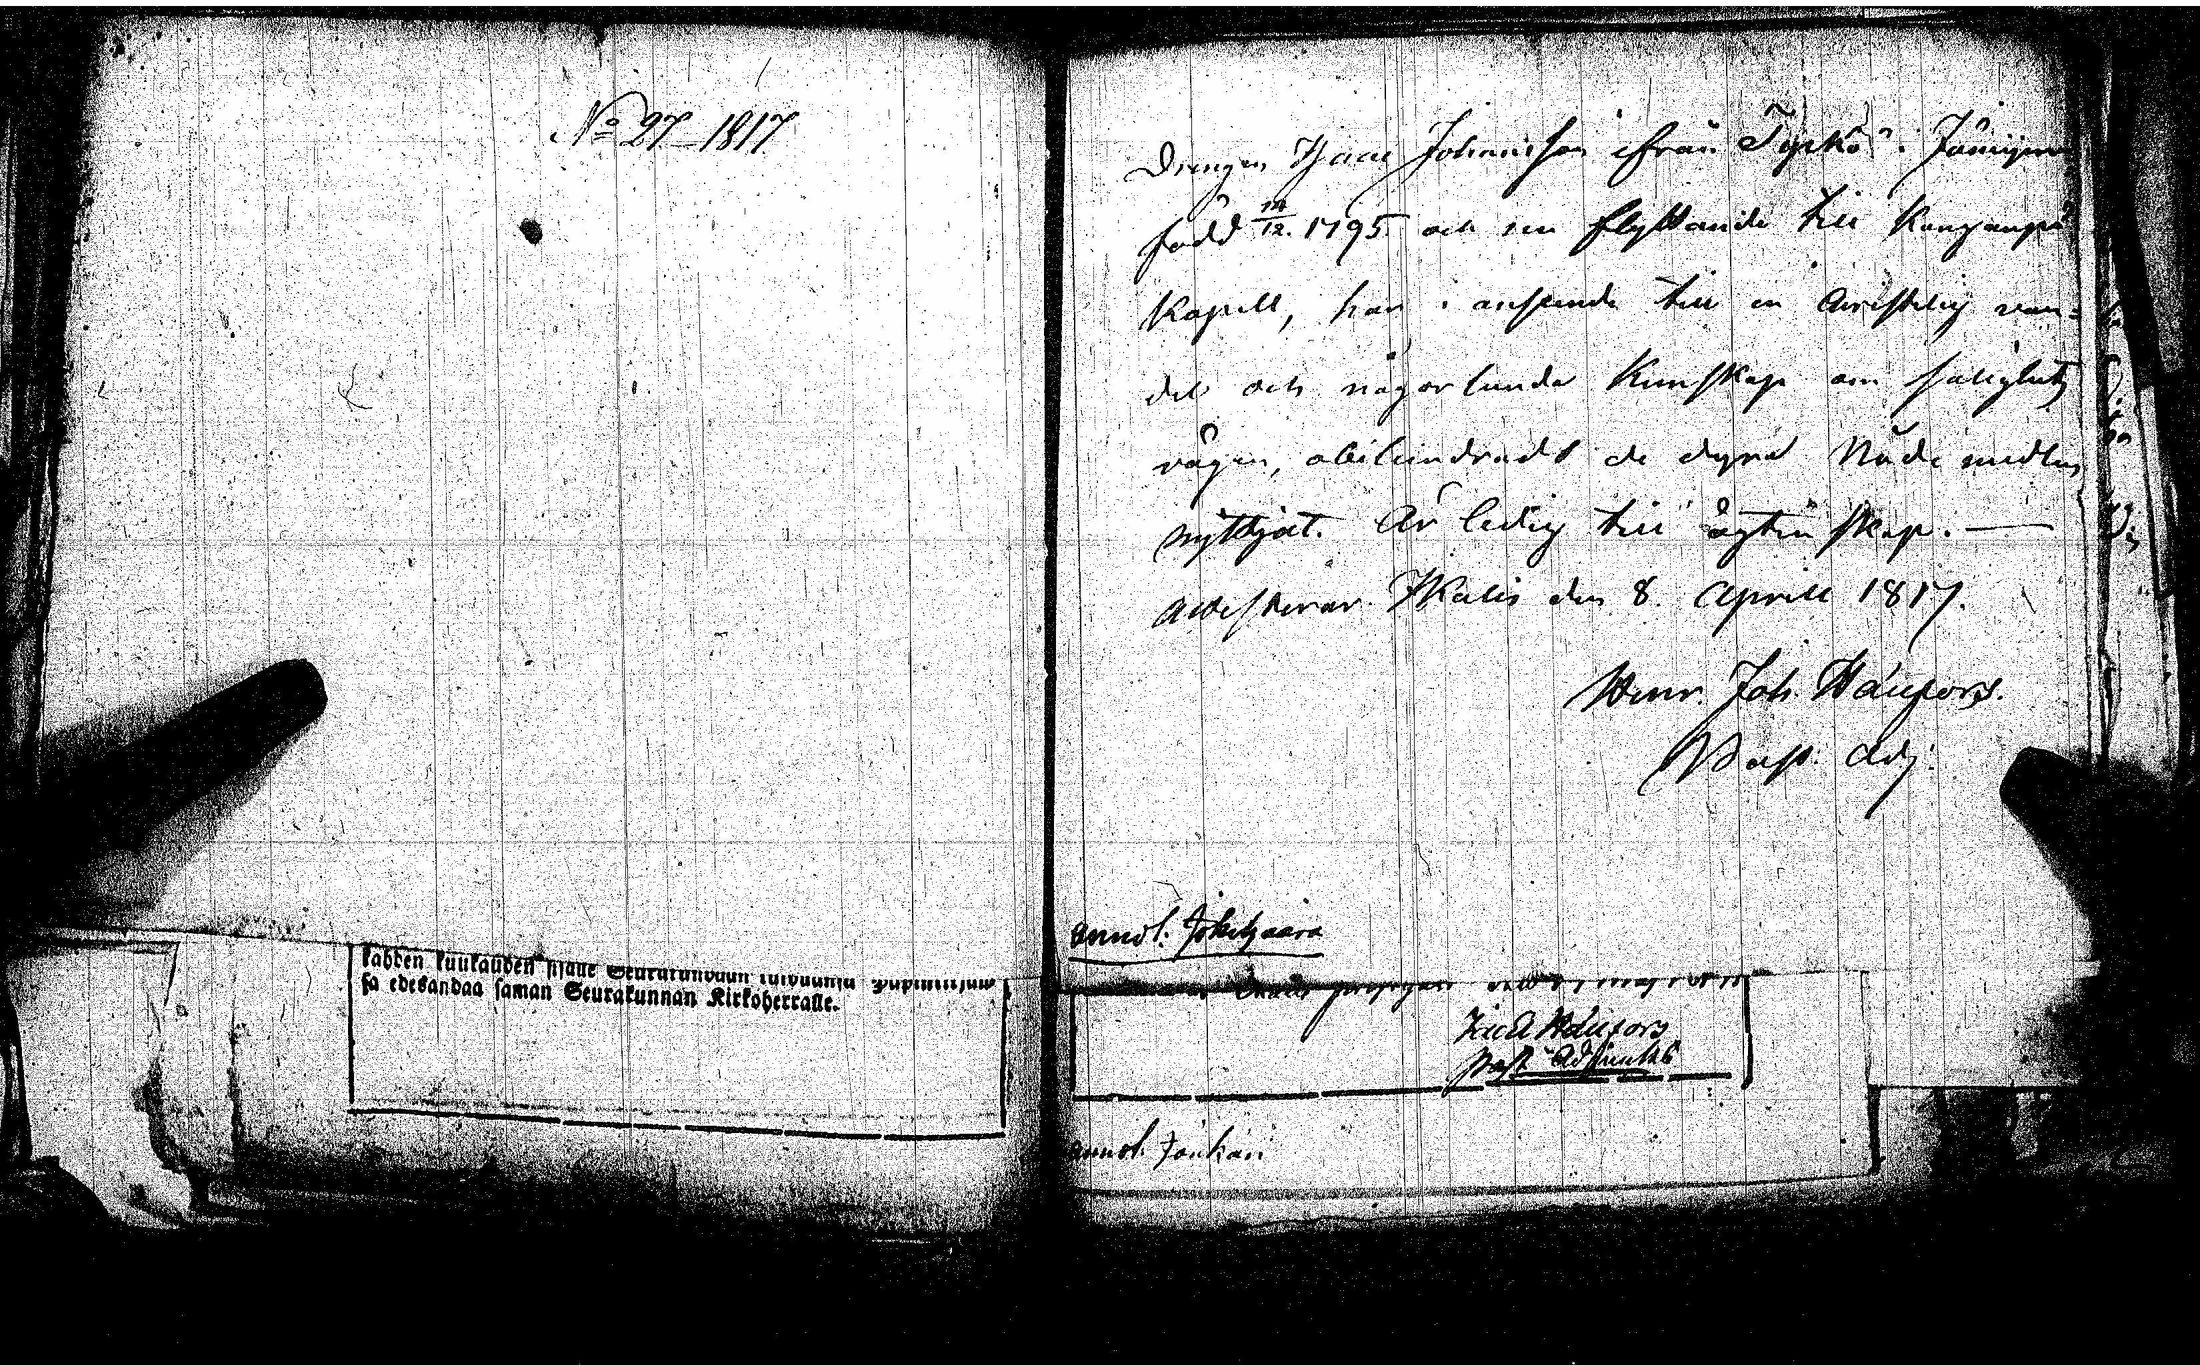 No 27_1817
Drengen Isaac Johansson ifrån Tyrkö i Jämijervi
född 14/12. 1795 och nu flyttande till Kanganpä
Kapell, har i anseende till en Christelig van=
del och någorlunda Kunskap om salighets
vägen, obehindradt de dyra Nåde medlen
nyttjat. Är ledig till ägtenskap. —
attesterar. Ikalis den 8. Aprill 1817.
Henr. Joh. Hänfors.
Past. Adj.
kahden kuukauden sisälle Seurakundaan
sa edesandaa saman Seurakunnan Kirkoherralle.
anmäl.
Hänfors
past. Adjunkt
anmäl.